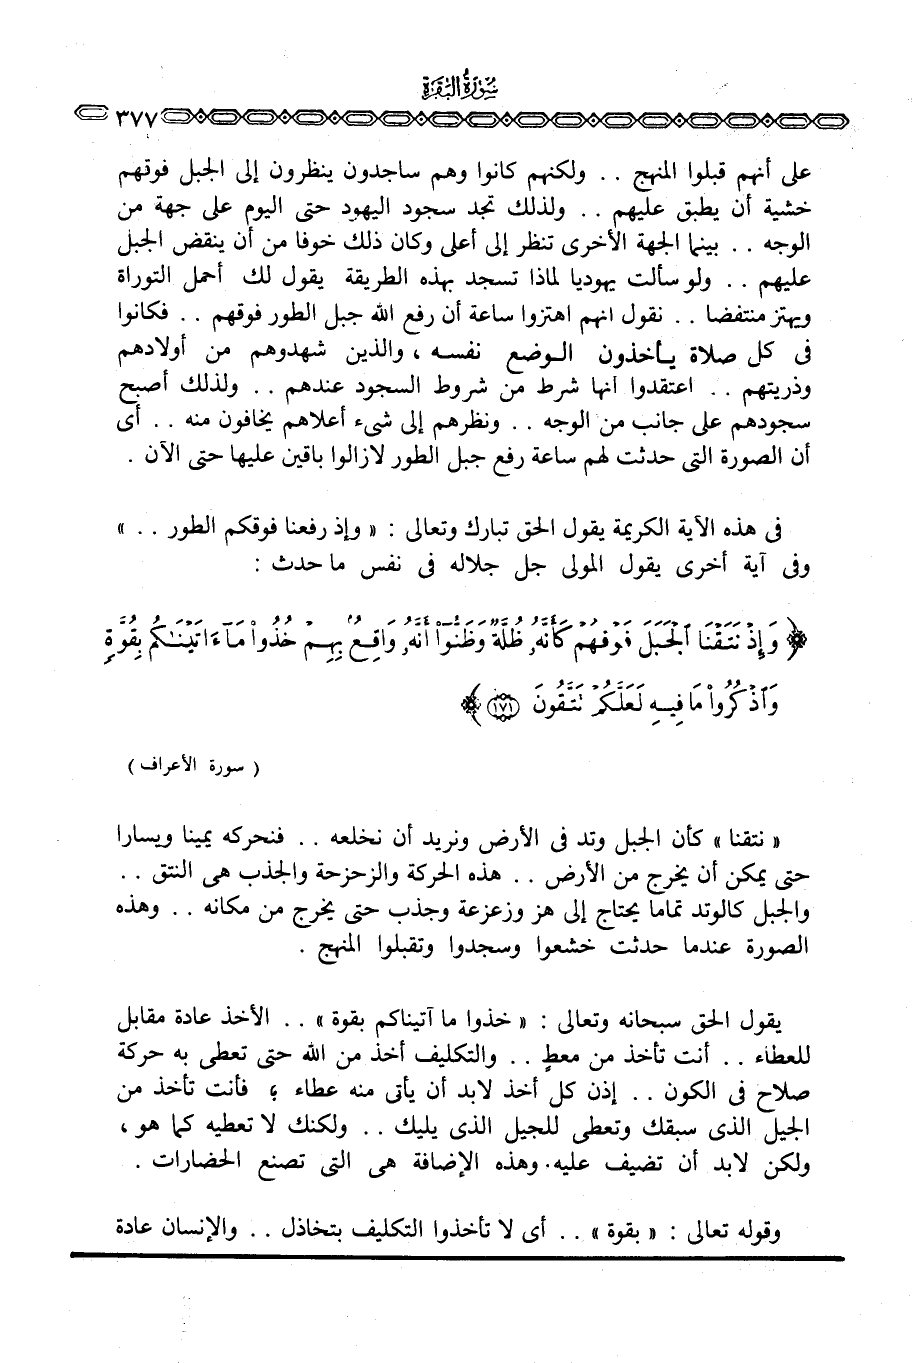 سورة البقرة
٣٧٧
على أنهم قبلوا المنهج .. ولكنهم كانوا وهم ساجدون ينظرون إلى الجبل فوقهم
خشية أن يطبق عليهم .. ولذلك تجد سجود اليهود حتى اليوم على جهة من
الوجه .. بينما الجهة الأخرى تنظر إلى أعلى وكان ذلك خوفا من أن ينقض الجبل
عليهم .. ولو سألت يهوديا لماذا تسجد بهذه الطريقة يقول لك أحمل التوراة
ويهتز منتفضا .. نقول انهم اهتزوا ساعة أن رفع الله جبل الطور فوقهم .. فكانوا
فى كل صلاة يأخذون الوضع نفسه ، والذين شهدوهم من أولادهم
وذريتهم .. اعتقدوا أنها شرط من شروط السجود عندهم .. ولذلك أصبح
سجودهم على جانب من الوجه .. ونظرهم إلى شىء أعلاهم يخافون منه .. أى
أن الصورة التى حدثت لهم ساعة رفع جبل الطور لازالوا باقين عليها حتى الآن .
فى هذه الآية الكريمة يقول الحق تبارك وتعالى : « وإذ رفعنا فوقكم الطور .. »
وفى آية أخرى يقول المولى جل جلاله فى نفس ما حدث :
﴿ وَإِذْ نَتَقْنَا ٱلْجَبَلَ فَوْقَهُمْ كَأَنَّهُۥ ظُلَّةٌ وَظَنُّوٓاْ أَنَّهُۥ وَاقِعٌۢ بِهِمْ خُذُواْ مَآ ءَاتَيْنَٰكُم بِقُوَّةٍ
وَٱذْكُرُواْ مَا فِيهِ لَعَلَّكُمْ تَتَّقُونَ ١٧١ ﴾
( سورة الأعراف )
« نتقنا » كأن الجبل وتد فى الأرض ونريد أن نخلعه .. فنحركه يمينا ويسارا
حتى يمكن أن يخرج من الأرض .. هذه الحركة والزحزحة والجذب هى النتق ..
والجبل كالوتد تماما يحتاج إلى هز وزعزعة وجذب حتى يخرج من مكانه .. وهذه
الصورة عندما حدثت خشعوا وسجدوا وتقبلوا المنهج .
يقول الحق سبحانه وتعالى : « خذوا ما آتيناكم بقوة » .. الأخذ عادة مقابل
للعطاء .. أنت تأخذ من معطٍ .. والتكليف أخذ من الله حتى تعطى به حركة
صلاح فى الكون .. إذن كل أخذ لابد أن يأتى منه عطاء ؛ فأنت تأخذ من
الجيل الذى سبقك وتعطى للجيل الذى يليك .. ولكنك لا تعطيه كما هو ،
ولكن لابد أن تضيف عليه. وهذه الإضافة هى التى تصنع الحضارات .
وقوله تعالى : « بقوة » .. أى لا تأخذوا التكليف بتخاذل .. والإنسان عادة